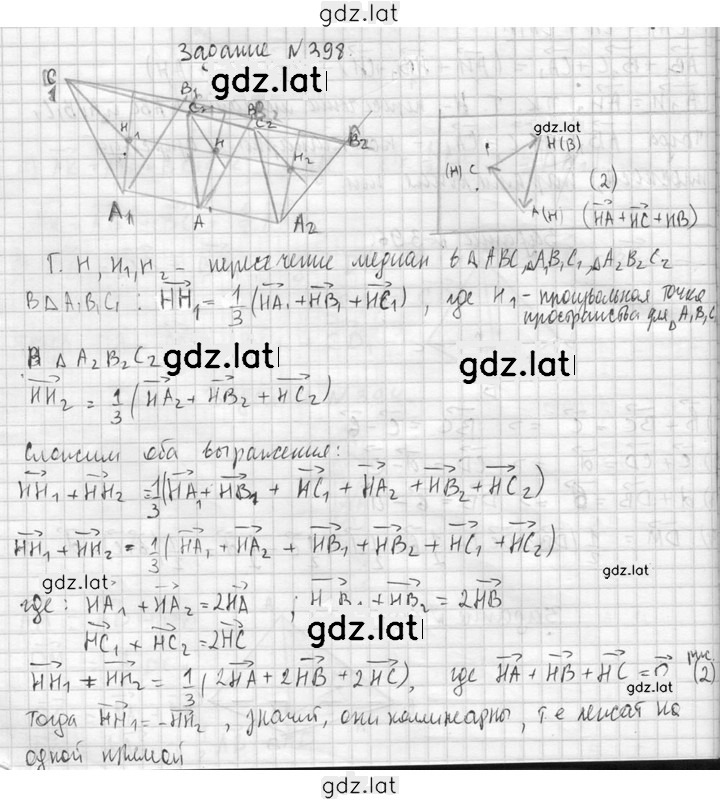 gdz.lat
Задание N 398.
gdz.lat
C
1
B₁
C
B
C₂
B₂
H₁
H
H₂
A₁
A
A₂
gdz.lat
H(B)
(H) C
(2)
A(H) (HA + HC + HB)
Т. H, H₁, H₂ - пересечение медиан в △ ABC, △A₁B₁C₁, △A₂B₂C₂
В △ A₁B₁C₁ : HH₁ = 1/3 (HA₁ + HB₁ + HC₁) , где H₁ - произвольная точка
пространства для △ A₁B₁C₁
В △ A₂B₂C₂ gdz.lat gdz.lat
HH₂ = 1/3 (HA₂ + HB₂ + HC₂)
Сложим оба выражения:
HH₁ + HH₂ = 1/3 (HA₁ + HB₁ + HC₁ + HA₂ + HB₂ + HC₂)
HH₁ + HH₂ = 1/3 (HA₁ + HA₂ + HB₁ + HB₂ + HC₁ + HC₂)
gdz.lat gdz.lat
где: HA₁ + HA₂ = 2HA ; HB₁ + HB₂ = 2HB
HC₁ + HC₂ = 2HC gdz.lat
HH₁ + HH₂ = 1/3 (2HA + 2HB + 2HC), где HA + HB + HC = 0 рис. (2)
gdz.lat
Тогда HH₁ = -HH₂ , значит, они коллинеарны, т.е лежат на
одной прямой
gdz.lat